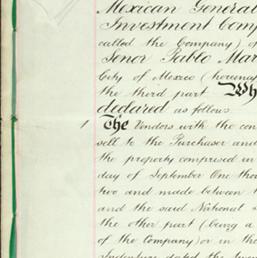 Mexican General
Investment Comp
called the Company) of
Senor Pablo Mar
City of Mexico (herein
the third part Wh
declared as follows
1 The Vendors with the con
sell to the Purchaser and
the property comprised in
day of September One tho
two and made between t
and the said National
the other part (being a
of the Company) or in the
Indenture dated the